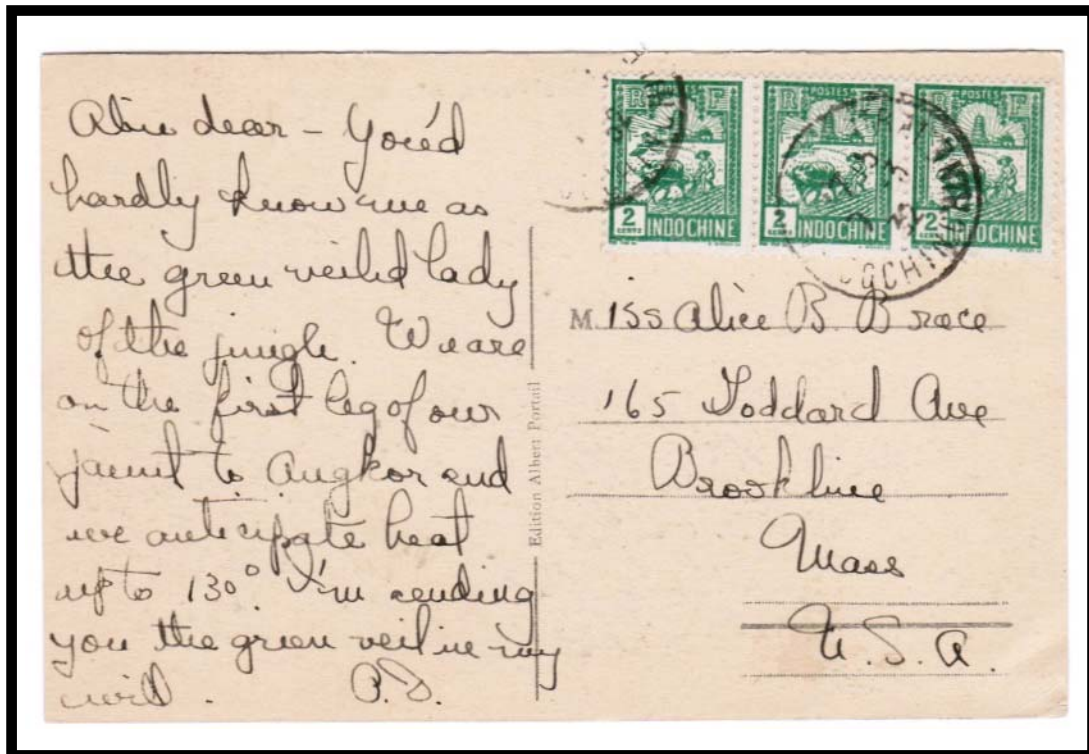 dear – You'd
hardly know me as
the green veiled lady
of the jungle. We are
on the first leg of our
jaunt to Angkor and
we anticipate heat
up to 130°. I'm sending
you the green veil in my
will.
Edition Albert Portail
POSTES
R F
2 CENTS INDOCHINE
POSTES
R F
2 CENTS INDOCHINE
POSTES
R F
2 CENTS INDOCHINE
Miss Alice B. Brace
165 Goddard Ave
Brookline
Mass
U.S.A.